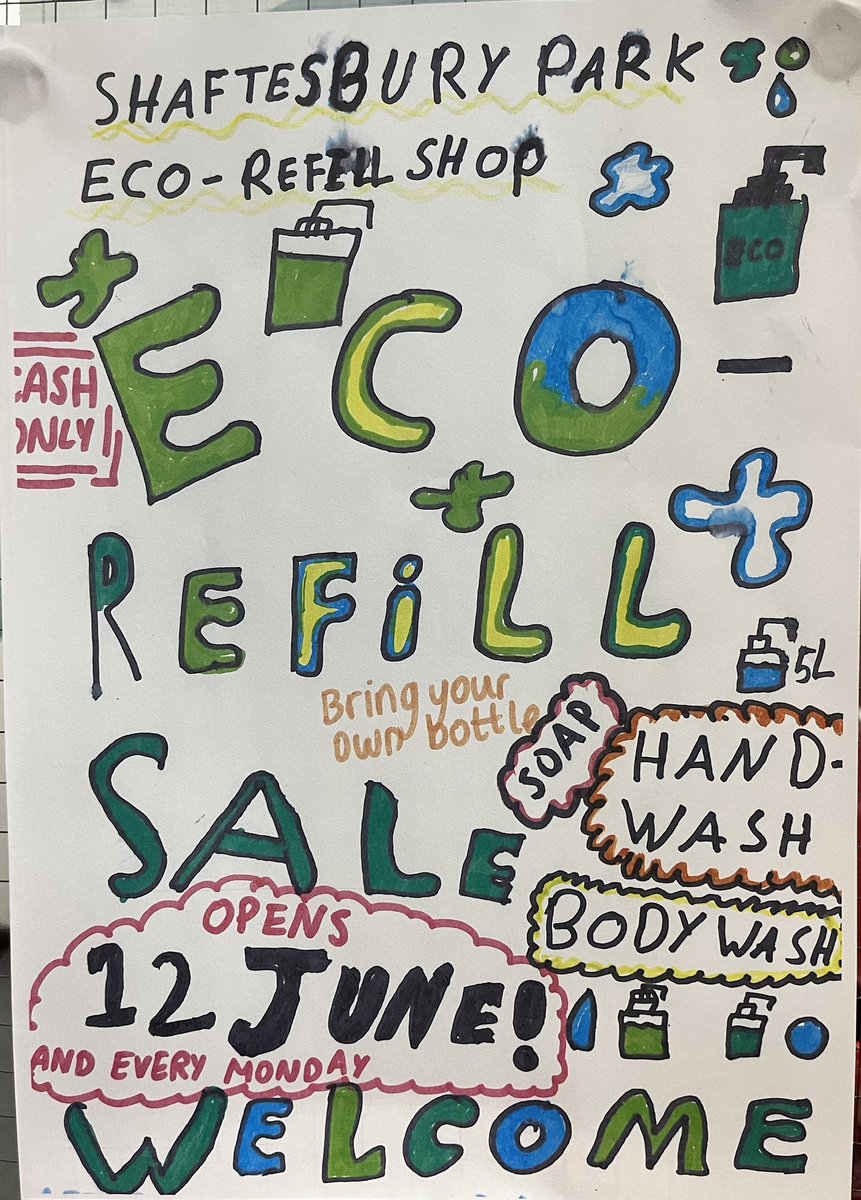 SHAFTESBURY PARK
ECO-REFILL SHOP
ECO
ECO-
CASH
ONLY
REFiLL
5L
Bring your
own bottle
SOAP
HAND-
WASH
SALE
BODY WASH
OPENS
12 JUNE!
AND EVERY MONDAY
WELCOME